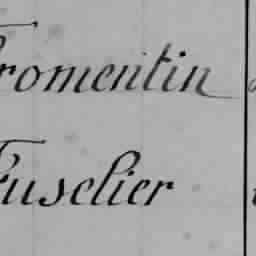 Fromentin
Fuselier